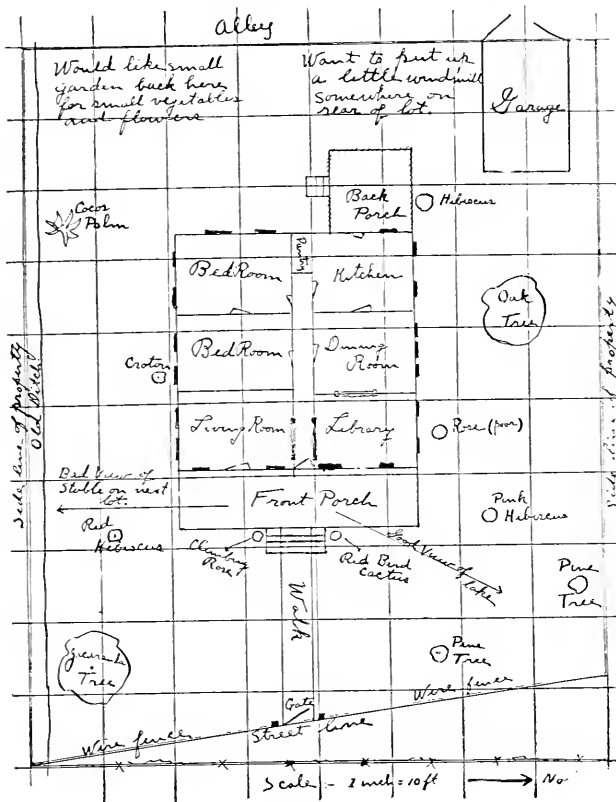 Alley
Would like small
garden back here
for small vegetables
and flowers
Want to put up
a little windmill
somewhere on
rear of lot.
Garage
Cocos
Palm
Back
Porch
Hibiscus
Pantry
Bed Room
Kitchen
Oak
Tree
Bed Room
Dining
Room
Croton
Side line of property
Old Ditch
Side line of property
Living Room
Library
Rose (poor)
Bad View of
Stable on next
lot.
Front Porch
Pink
Hibiscus
Red
Hibiscus
Climbing
Rose
Red Bird
Cactus
Good View of lake
Walk
Pine
Tree
Pine
Tree
Tree
Gate
Wire fence
Street line
Wire fence
Scale - 1 inch = 10 ft
No